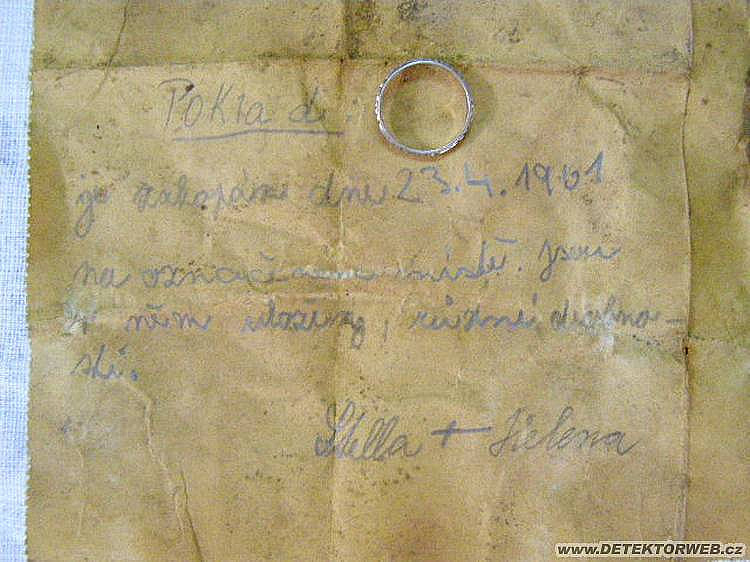 Poklad.
je zakopán dne 23.4.1961
na označeném místě. Jsou
v něm uloženy, různé drobno-
sti.
Stella + Helena
www.DETEKTORWEB.cz